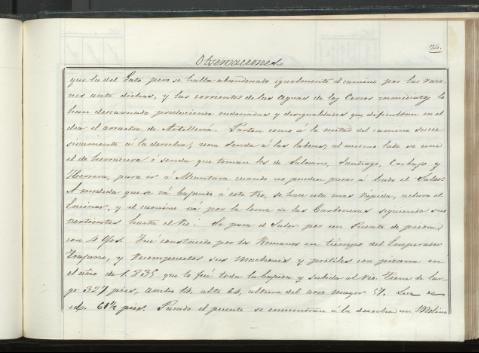 26.
Observaciones
que la del Salto pero se halla abandonado igualmente el camino por las razo-
nes ante dichas, y las corrientes de las aguas de los Cerros inmediatos lo
han descarnado produciendo endeduras y desigualdades que dificultan en el
dia el arrastre de Artilleria. Parten como á la mitad del camino suce-
sivamente á la derecha, una senda á las laderas, al mismo lado se une
el de herradura ó senda que toman los de Salorino, Santiago, Carbajo, y
Herrera, para ir á Alcantara cuando no pueden pasar á bado el Salor.
A medida que se vá bajando á este Rio, se hace este mas rigida, aclara el
Encinar, y el camino vá por la loma de las Carboneras siguiendo sus
vertientes hasta el Rio. Se pasa el Salor por un Puente de piedra
con 4 Ojos. Fué construido por los Romanos en tiempo del Emperador
Trajano, y recompuestos sus Machones y pretiles con pizarra en
el año de 1.835 que lo fué toda la bajada y subida al Rio. Tiene de lar-
go 327 pies, ancho 12, alto 64, altura del arco mayor 57. Luz de
id. 61½ pies. Pasado el puente se encuentran á la derecha un Molino